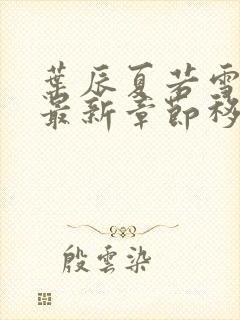 葉辰夏若雪
最新章節移
殷雲染